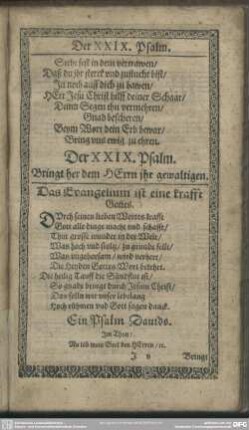 Der XXIX. Psalm.
Steht fest in dein vertrawen/
Daß du jhr sterck und zuflucht bist/
In noch auff dich zu hawen/
HErr Jesu Christ hilff deiner Schaar/
Dein Segen thu vermehren/
Gnad bescheren/
Beym Wort dein Erb bewar/
Bring uns ewig zu ehren.
Der XXIX. Psalm.
Bringt her dem HErrn jhr gewaltigen.
Das Evangelium ist eine krafft
Gottes.
DUrch seines lieben Wortes krafft
Gott alle dinge macht und schafft/
Thut grosse wunder in der Welt/
Was hoch und stoltz/ zu grunde fellt/
Was ungehorsam/ wird verhert/
Die Heyden Gottes Wort bekehrt.
Die heilig Tauff die Sündflut ist/
So gnade bringt durch Jesum Christ/
Das sollen wir unser lebelang
Hoch rühmen und Gott sagen danck.
Ein Psalm Davids.
Im Thon:
An
Bringt